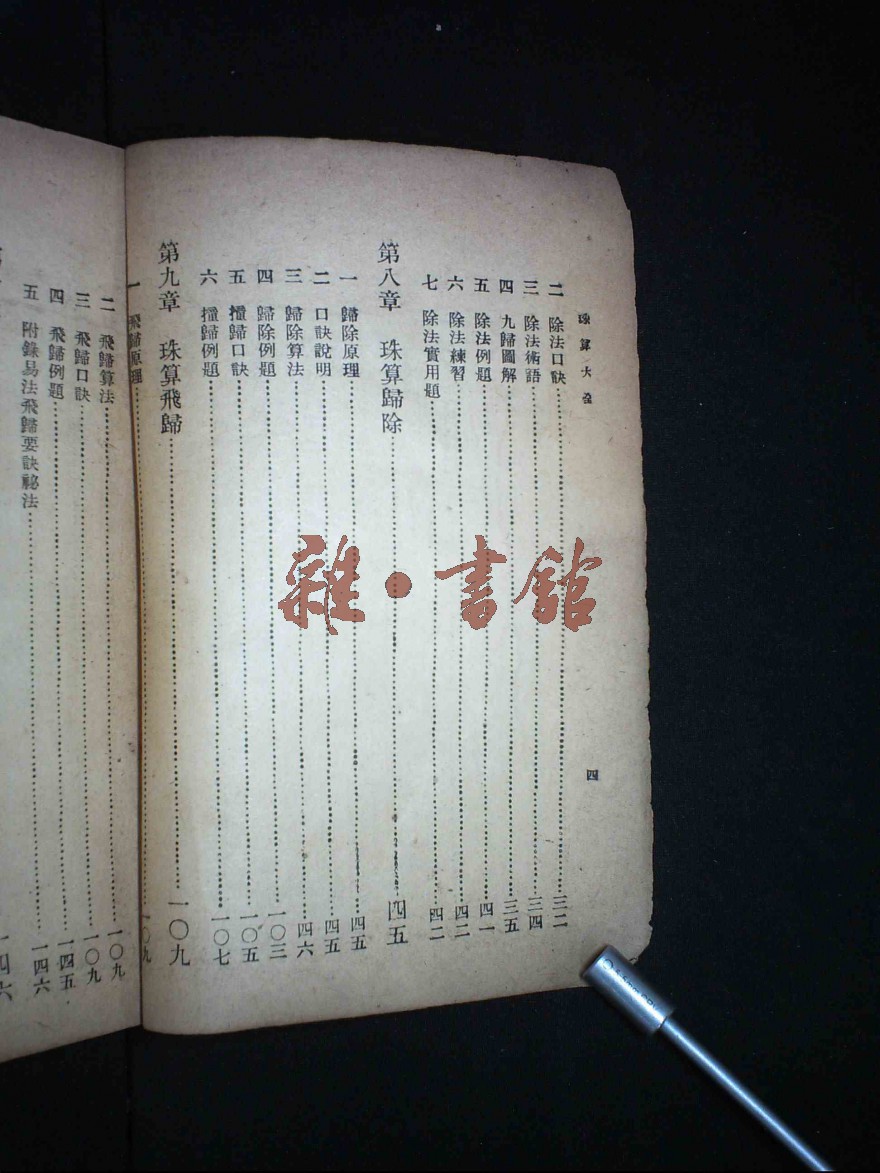 珠算大全
四
二 除法口訣 三二
三 除法術語 三四
四 九歸圖解 三五
五 除法例題 四一
六 除法練習 四二
七 除法實用題 四二
第八章 珠算歸除 四五
一 歸除原理 四五
二 口訣說明 四五
三 歸除算法 四六
四 歸除例題 一〇三
五 撞歸口訣 一〇五
六 撞歸例題 一〇七
第九章 珠算飛歸 一〇九
一 飛歸原理 一〇九
二 飛歸算法 一〇九
三 飛歸口訣 一〇九
四 飛歸例題 一四五
五 附錄易法飛歸要訣秘法 一四六
一四六
雜·書館